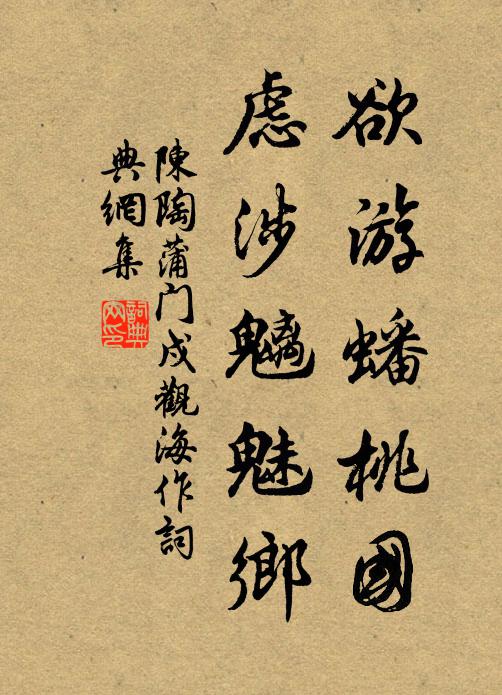 欲游蟠桃國
慮涉魑魅鄉
陳陶蒲門戍觀海作詞
典網集
詞典
网印